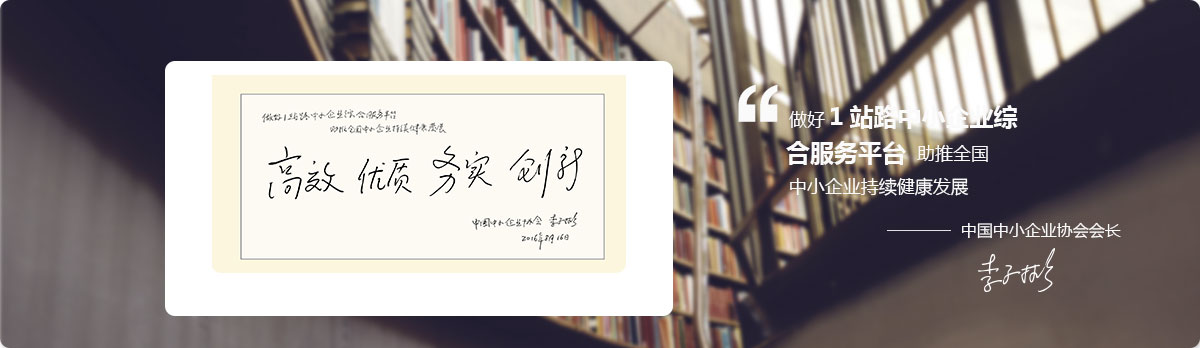 做好1站路中小企业综合服务平台
助推全国中小企业持续健康发展
高效 优质 务实 创新
中国中小企业协会 李子彬
2016年8月16日
“
做好1站路中小企业综
合服务平台 助推全国
中小企业持续健康发展
中国中小企业协会会长
李子彬